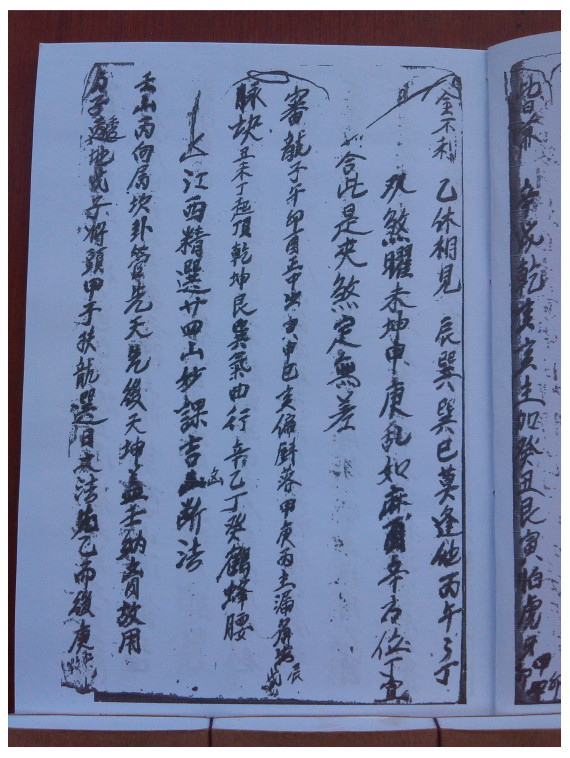 辛戌乾亥亥生加癸丑艮寅怕虎
金不利 乙休相見 辰巽巽巳莫逢他丙午丁
双煞曜未坤申庚乱如麻酉辛
合此是夾煞定無差
審龍子午卯酉 申巳亥偏斜落甲庚丙 漏
脉訣丑未丁起頂乾坤艮巽氣由行辛乙丁癸鶴蜂腰
江西精選廿四山妙課吉凶断法
壬山丙向属坎卦管先天兌後天坤 壬納 故用
方子透地戊子將頭甲子扶龍選日之法 乙而後庚